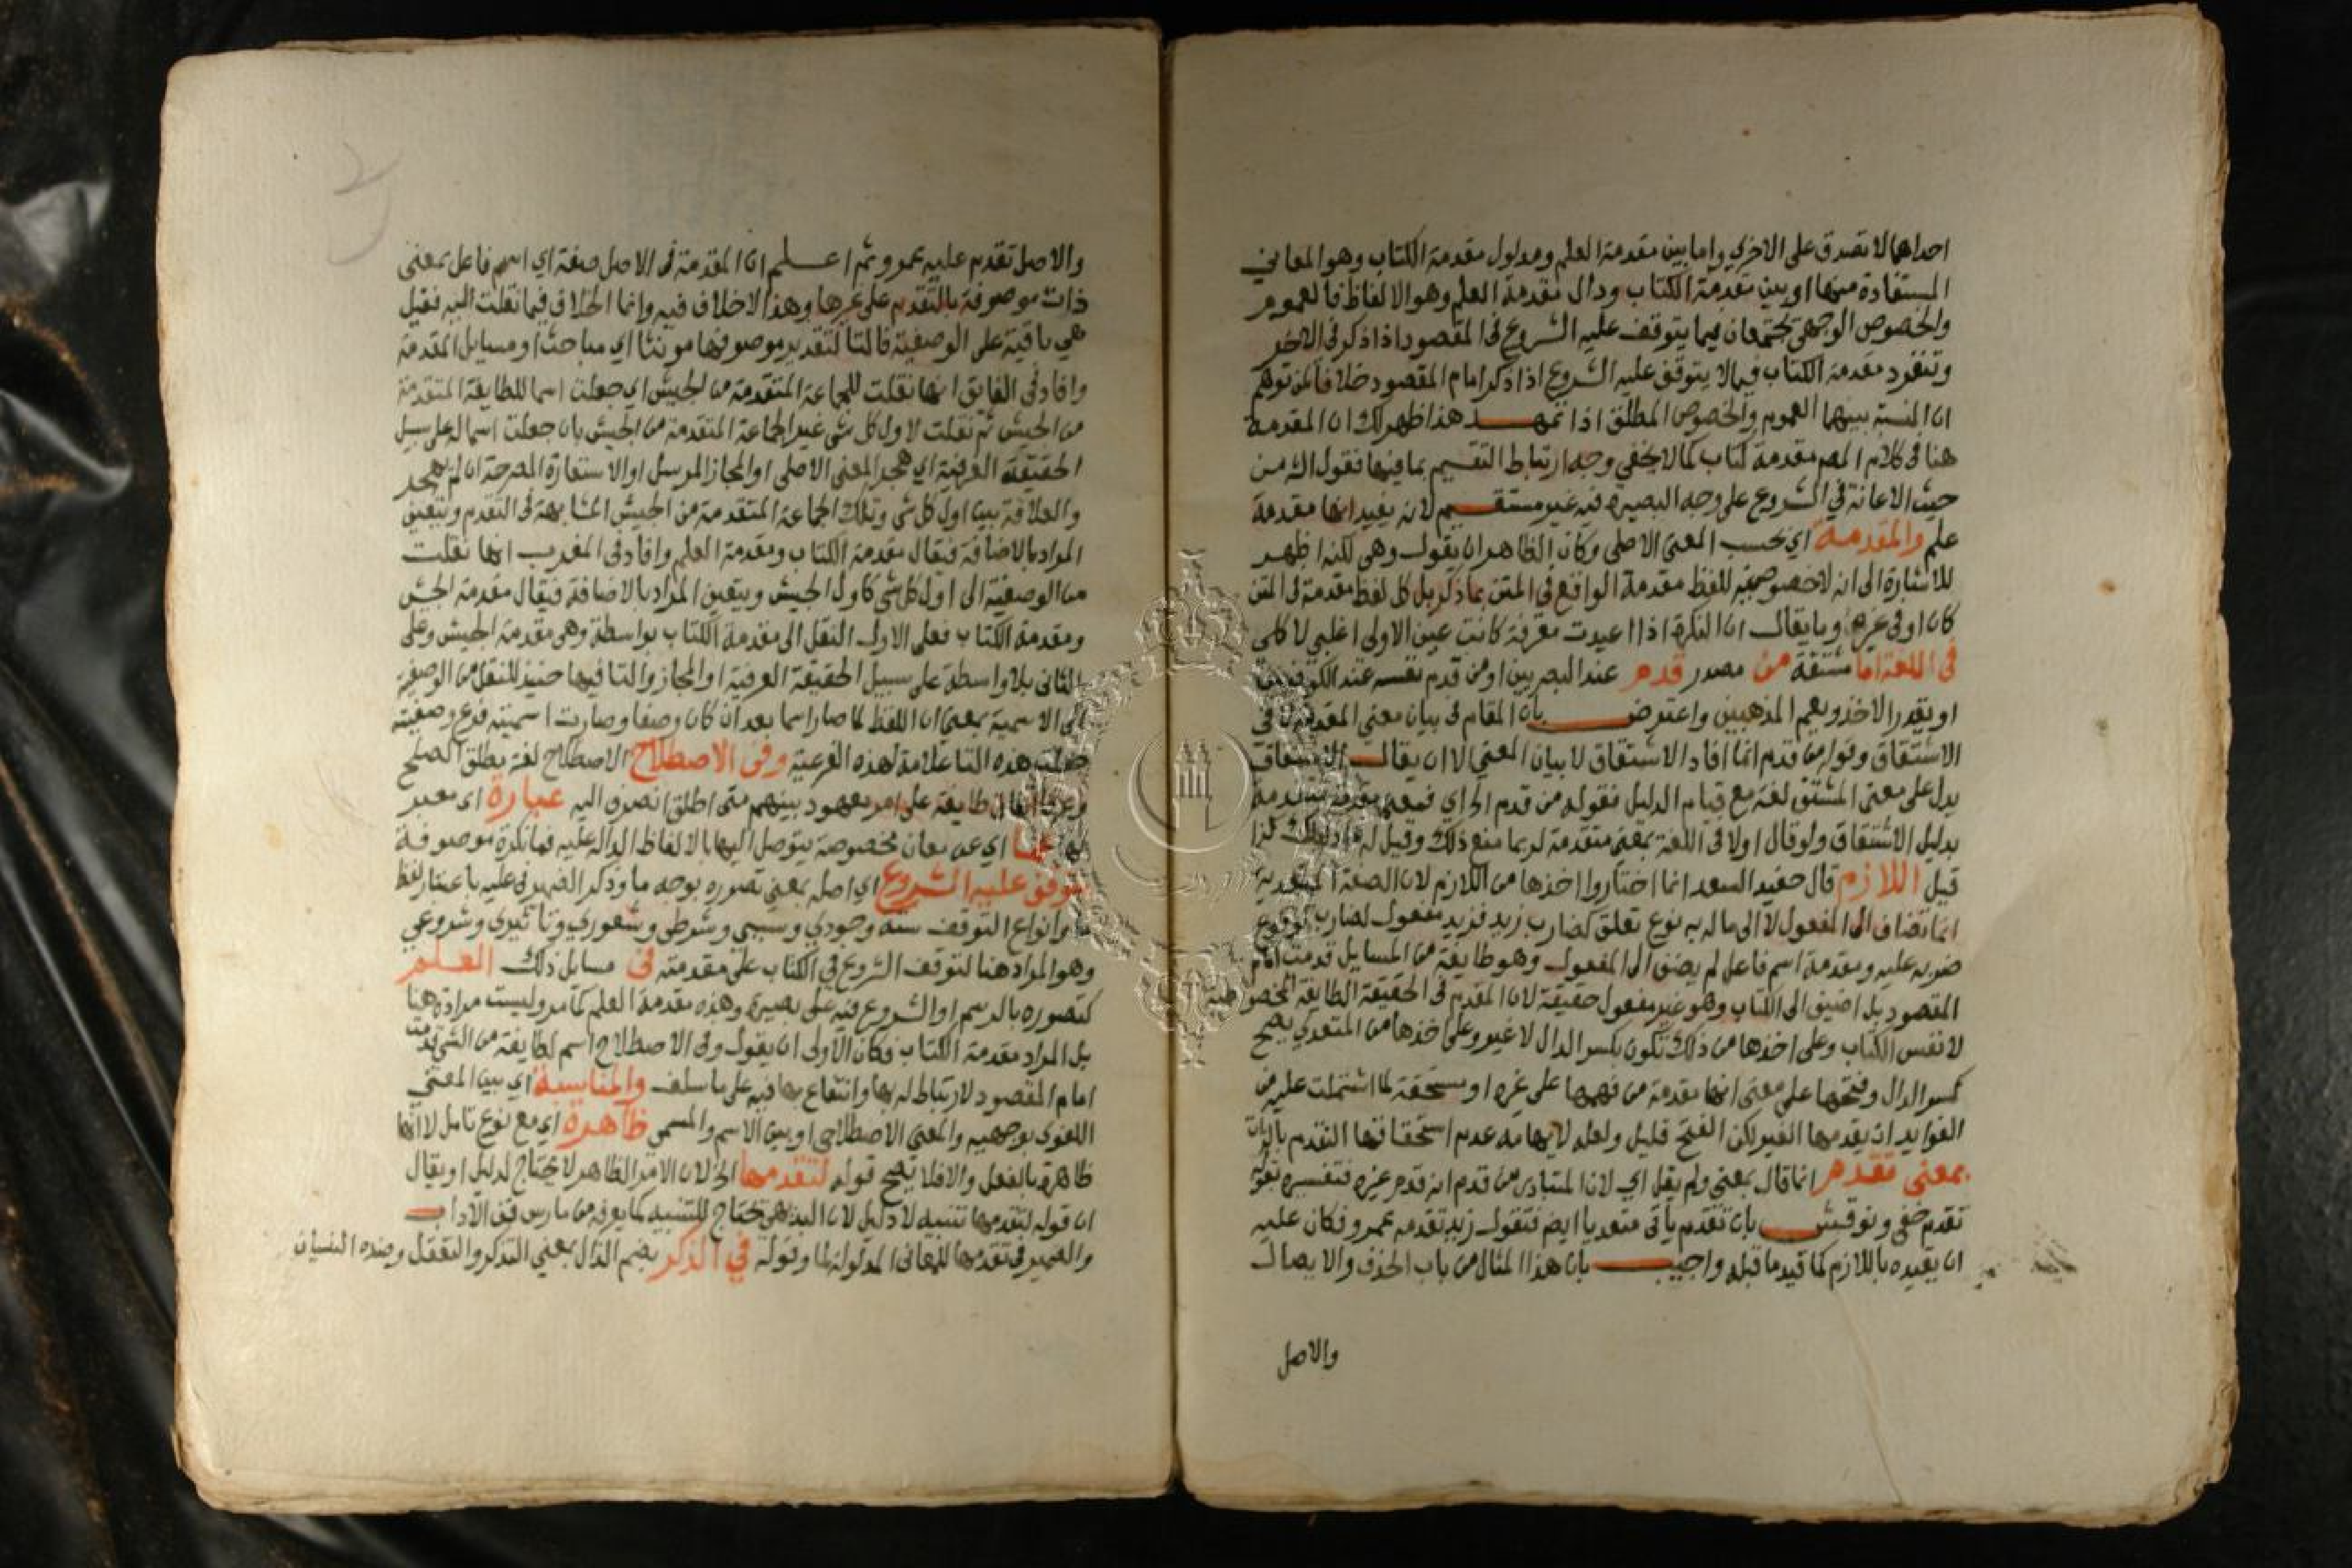 احداهما لا تصدق على الاخري واما بين مقدمة العلم ومدلول مقدمة الكتاب وهو المعاني
المستفادة منها او بين مقدمة الكتاب ودال مقدمة العلم وهو الالفاظ فالعموم
والخصوص الوجهي يجتمعان فيما يتوقف عليه الشروع في المقصود اذا ذكر في الاخر
وتنفرد مقدمة الكتاب فيما لا يتوقف عليه الشروع اذا ذكر امام المقصود خلافا لمن توهم
ان النسبة بينهما العموم والخصوص المطلق اذا تمهد هذا ظهر لك ان المقدمة
هنا في كلام المص مقدمة كتاب كما لا يخفي وجه ارتباط التقسيم بما فيها فقول الش من
حيث الاعانة في الشروع على وجه البصيرة فيه غير مستقيم لانه يفيد انها مقدمة
علم والمقدمة اي بحسب المعنى الاصلي وكان الظاهر ان يقول وهي لكنه اظهر
للاشارة الى انه لا خصوصية للفظ مقدمة الواقع في المتن بما ذكر بل كل لفظ مقدمة في المتن
كان او في غيره وما يقال ان النكرة اذا اعيدت معرفة كانت عين الاولى اغلبي لا كلى
في اللغة اما مشتقة من مصدر قدم عند البصريين او من قدم نفسه عند الكوفيين
او يقدر الاخذ ويعم المذهبين واعترض بان المقام في بيان معنى المقدمة لا في
الاشتقاق وقوله من قدم انما افاد الاشتقاق لا بيان المعني الا ان يقال الاشتقاق
يدل على معنى المشتق لغة مع قيام الدليل فقوله من قدم الخ اي فمعنى مقدمة متقدمة
بدليل الاشتقاق ولو قال اولا في اللغة بمعنى متقدمة لربما منع ذلك وقيل له ما دليلك لذا
قيل اللازم قال حفيد السعد انما اختاروا اخذها من اللازم لان الصفة المتعدية
انما تضاف الى المفعول لا الى ما له به نوع تعلق كضارب زيد فزيد مفعول لضارب لوقوع
ضربه عليه ومقدمة اسم فاعل لم يضف الى المفعول وهو طايفة من المسايل قدمت امام
المقصود بل اضيف الى الكتاب وهو غير مفعول حقيقة لان المقدم في الحقيقة الطايفة المخصوصة
لا نفس الكتاب وعلى اخذها من ذلك تكون بكسر الدال لا غير وعلى اخذها من المتعدي يصح
كسر الدال وفتحها على معنى انها مقدمة من فهمها على غيره او مستحقة لما اشتملت عليه من
الفوايد ان يقدمها الغير لكن الفتح قليل ولعله لايهامه عدم استحقاقها التقدم بالذات
بمعنى تقدم انما قال بمعنى ولم يقل اي لان المتبادر من قدم انه قدم غيره فتفسيره بقوله
تقدم خفي ونوقش بان تقدم ياتى متعديا ايض فتقول زيد تقدمه عمرو فكان عليه
ان يقيده باللازم كما قيد ما قبله واجيب بان هذا المثال من باب الحذف والايصال
والاصل
والاصل تقدم عليه عمرو ثم اعلم ان المقدمة في الاصل صفة اي اسم فاعل بمعنى
ذات موصوفة بالتقدم على غيرها وهذا لا خلاف فيه وانما الخلاف فيما نقلت اليه فقيل
هي باقية على الوصفية فالتا لتقدير موصوفها مونثا اي مباحث او مسايل المقدمة
وافاد في الفايق انها نقلت للجماعة المتقدمة من الجيش اي جعلت اسما للطايفة المتقدمة
من الجيش ثم نقلت لاول كل شى غير الجماعة المتقدمة من الجيش بان جعلت اسما له على سبيل
الحقيقة العرفية اي هجر المعني الاصلي او المجاز المرسل او الاستعارة المصرحة ان لم يهجر
والعلاقة بين اول كل شى وتلك الجماعة المتقدمة من الجيش المشابهة في التقدم ويتعين
المراد بالاضافة فيقال مقدمة الكتاب ومقدمة العلم وافاد في المغرب انها نقلت
من الوصفية الى اول كل شى كاول الجيش ويتعين المراد بالاضافة فيقال مقدمة الجيش
ومقدمة الكتاب فعلى الاول النقل الى مقدمة الكتاب بواسطة وهي مقدمة الجيش وعلى
الثانى بلا واسطة على سبيل الحقيقة العرفية او المجاز والتا فيها حينيذ للنقل من الوصفية
الى الاسمية بمعنى ان اللفظ لما صار اسما بعد ان كان وصفا وصارت اسميته فرع وصفيته
جعلت هذه التا علامة لهذه الفرعية وفى الاصطلاح الاصطلاح لغة مطلق الصلح
وعرفا اتفاق طايفة على امر معهود بينهم متى اطلق انصرف اليه عبارة اى معبر
بها عما اي عن معان مخصوصة يتوصل اليها بالالفاظ الدالة عليه فما نكرة موصوفة
يتوقف عليه الشروع اي اصله بمعني تصوره بوجه ما وذكر الضمير في عليه باعتبار لفظ
ما وانواع التوقف ستة وجودي وسببي وشرطى وشعوري وتاثيرى وشروعي
وهو المراد هنا لتوقف الشروع في الكتاب على مقدمته فى مسايل ذلك العلم
كتصوره بالرسم او الشروع فيه على بصيرة وهذه مقدمة العلم كما مر وليست مرادة هنا
بل المراد مقدمة الكتاب فكان الاولى ان يقول وفى الاصطلاح اسم لطايفة من الشى قدمت
امام المقصود لارتباط له بها وانتفاع بها فيه على ما سلف والمناسبة اي بين المعنى
اللغوى بوجهيه والمعني الاصطلاحي او بين الاسم والمسمي ظاهرة اي مع نوع تامل لا انها
ظاهرة بالفعل والا فلا يصح قوله لتقدمها الخ لان الامر الظاهر لا يحتاج لدليل او يقال
ان قوله لتقدمها تنبيه لا دليل لان البديهي يحتاج للتنبيه كما يعرفه من مارس فن الاداب
والضمير في تقدمها للمعانى المدلولة لها وقوله في الذكر بضم الذال بمعني التذكر والتعقل وضده النسيان